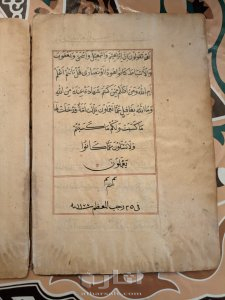 ام تقولون ان ابراهيم واسمعيل واسحق ويعقوب
والاسباط كانوا هودا او نصارى قل ءانتم اعلم
ام الله ومن اظلم ممن كتم شهادة عنده من الله
وما الله بغافل عما تعملون تلك امة قد خلت لها
ما كسبت ولكم ما كسبتم
ولا تسئلون عما كانوا
يعملون
في ٢٥ رجب المعظم